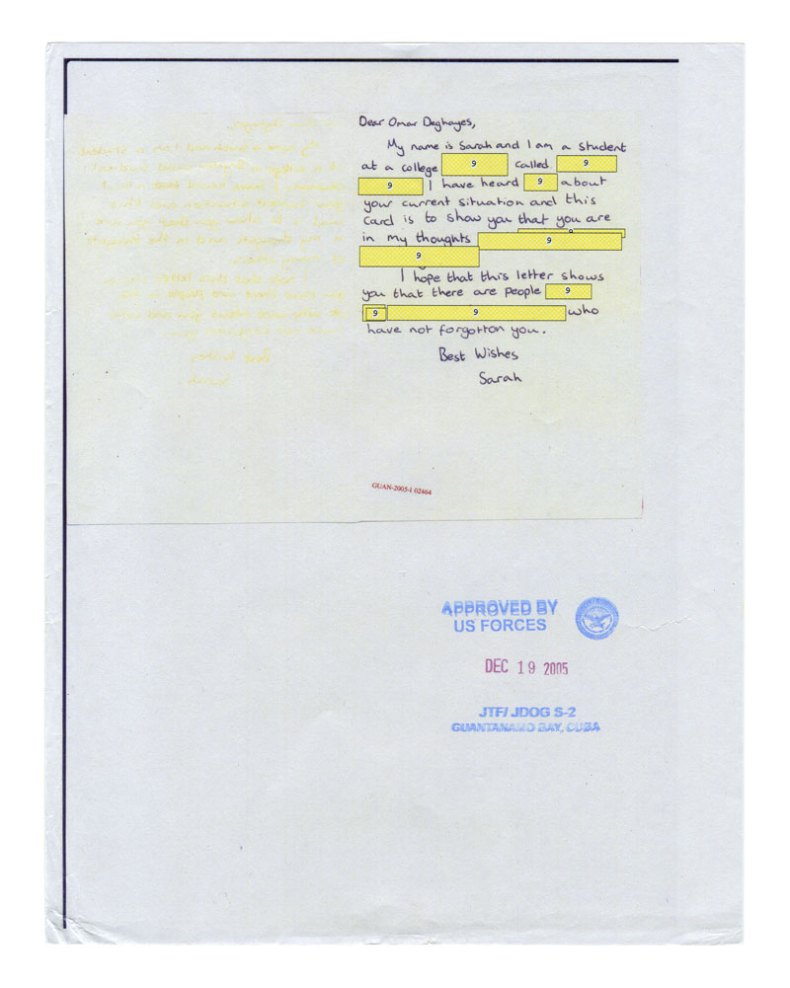 Dear Omar Deghayes,
My name is Sarah and I am a student
at a college 9 called 9
9 I have heard 9 about
your current situation and this
card is to show you that you are
in my thoughts 9
9
I hope that this letter shows
you that there are people 9
9 9 who
have not forgotton you.
Best Wishes
Sarah
GUAN-2005-I 02464
APPROVED BY
US FORCES
DEC 19 2005
JTF/ JDOG S-2
GUANTANAMO BAY, CUBA